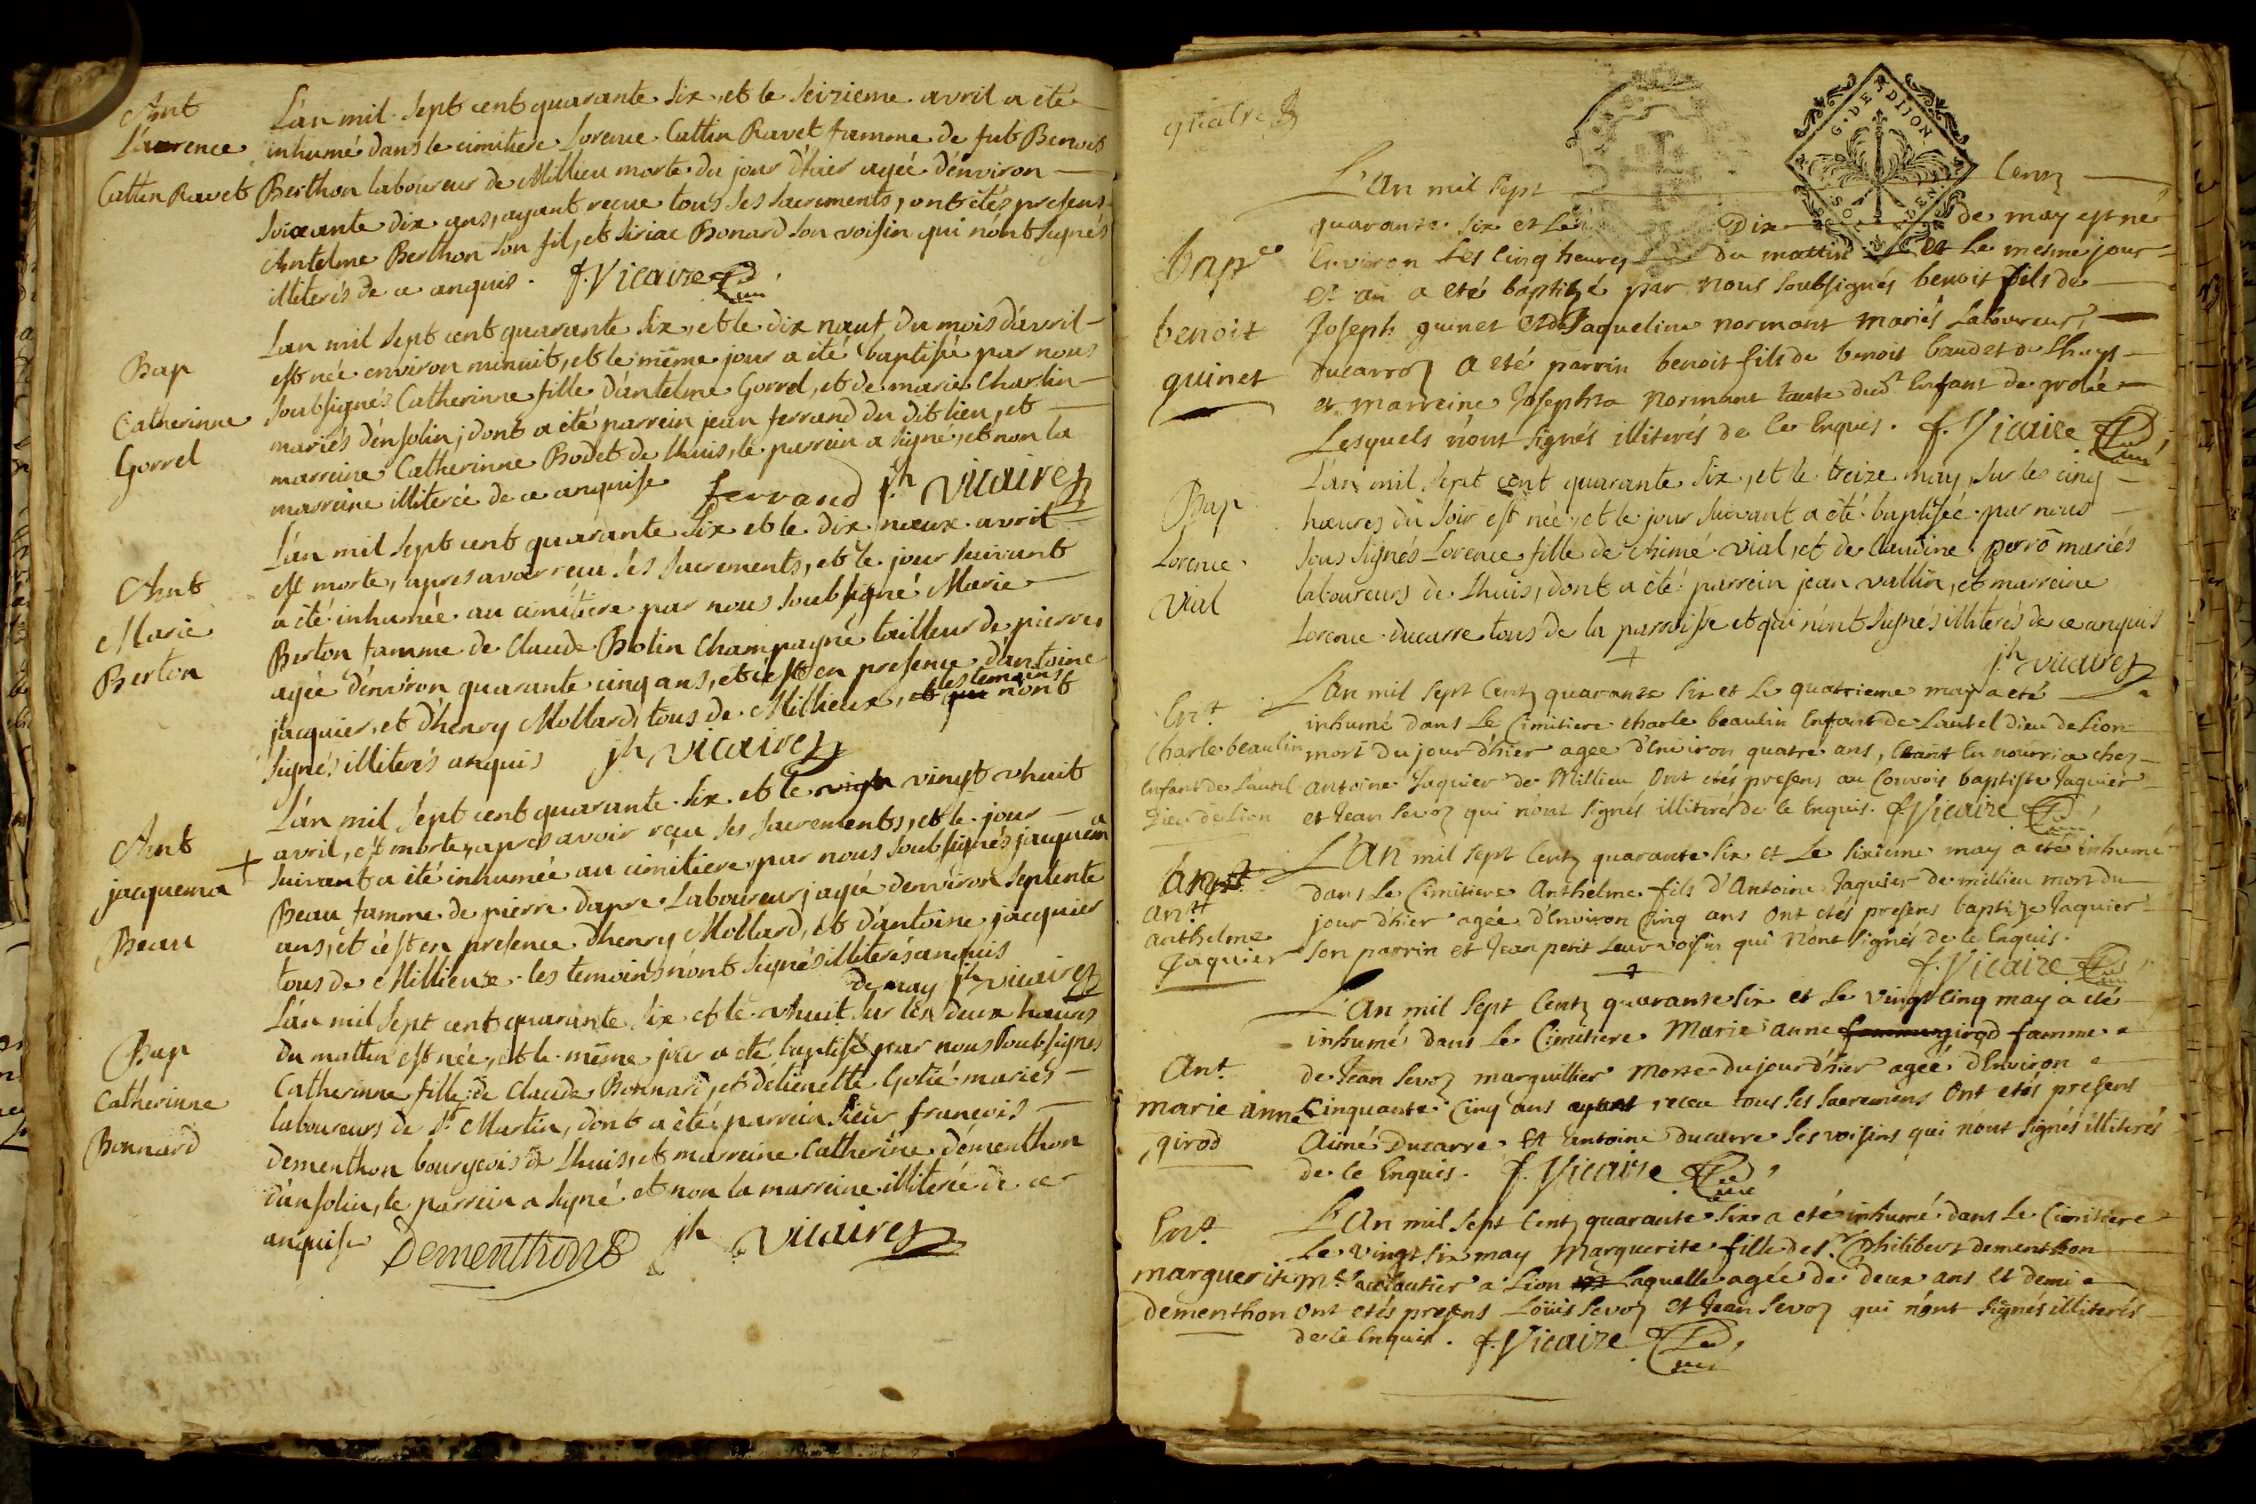 Ant
Laurence
Cattin Ravet
L'an mil sept cent quarante six, et le seizieme avril a été
inhumé dans le cimitiere Lorence Cattin Ravet famme de fut Benoit
Berthon laboureur de Millieu morte du jour d'hier agée d'énviron
soixante dix ans, ayant reçue tous ses sacrements, ont étés presens
Antelme Berthon son fil, et Siriac Bonard son voisin qui n'ont signés
illiterés de ce anquis. f. Vicaire
Bap
Catherinne
Gorrel
L'an mil sept cent quarante six, et le dix nœuf du mois d'avril
est née environ minuit, et le même jour a été baptisée par nous
soubsignés Catherinne fille d'antelme Gorrel, et de marie Charlin
mariés d'énsolin, dont a été parrein jean ferrand du dit lieu, et
marreine Catherinne Bodet de Lhuis, le parrein a signé, et non la
marreine illiterée de ce anquise ferrand jh vicaire
Ant
Marie
Berton
L'an mil sept cent quarante six et le dix nœux avril
est morte, apres avoir reçu ses sacrements, et le jour suivant
a été inhumée au cimitiere par nous soubsigné Marie
Berton famme de Claude Bolin Champagne tailleur de pierres
agée d'énviron quarante cinq ans, et c'est en presence d'antoine
jacquier, et d'henry Mollard, tous de Millieux, et qui les temoins n'ont
signés illiterés anquis jh vicaire
Ant
jacquema
Beau
L'an mil sept cent quarante six et le vingt vingt vhuit
avril, est morte, apres avoir reçu ses sacrements, et le jour
suivant a été inhumée au cimitiere par nous soubsignés jacquema
Beau famme de pierre dapre laboureur, agée d'environ septente
ans, et c'est en presence d'henry Mollard, et d'antoine jacquier
tous de Millieux les temoins n'ont signés illiterés anquis
jh vicaire
Bap
Catherinne
Bonnard
L'an mil sept cent quarante six et le vhuit de may sur les deux hœures
du mattin est née, et le même jour a été baptisé par nous soubsignés
Catherinne fille de Claude Bonnard, et d'étienette Gotié mariés
laboureurs de St Martin, dont a été parrein sieur françois
Dementhon bourgeois de Lhuis, et marreine Catherine démenthon
d'ansolin, le parrein a signé et non la marreine illiterée de ce
anquise Dementhon jh vicaire
quatre
G. DE DIJON
SO DEN
bap
benoit
guinet
L'an mil sept cent
quarante six et le dix de may est né
environ les cinq heures du mattin et le mesme jour
et an a eté baptizé par nous soubsignés benoit fils de
Joseph guinet et de Jaqueline normant mariés laboureurs
ducarroz a eté parrin benoit fils de benoit baudet de Lhuys
et marreine Josephta normant tante dud. enfant de grolée
Lesquels n'ont signés illiterés de ce enquis. f. Vicaire
Bap
Lorence
Vial
L'an mil sept cent quarante six, et le treize may, sur les cinq
hœures du soir est née, et le jour suivant a été baptisée par nous
sous signés Lorence fille de Aimé vial, et de Claudine perrō mariés
laboureurs de Lhuis, dont a été parrein jean vallin, et marreine
Lorence ducarre tous de la paroisse et qui n'ont signés illiterés de ce anquis
jh vicaire
Ent
Charle beaulin
enfant de Lautel
Dieu de Lion
L'an mil sept centz quarante six et le quatrieme may a eté
inhumé dans le cimitiere charle beaulin enfant de Lautel dieu de Lion
mort du jour d'hier agée d'environ quatre ans, etant en nourrice chez
antoine Jaquier de Millieu ont etés presens au convois baptiste Jaquier
et Jean Sevoz qui n'ont signés illiterés de ce enquis. f. Vicaire
ant
anthelme
Jaquier
L'an mil sept centz quarante six et le sixieme may a eté inhumé
dans le cimitiere Anthelme fils d'Antoine Jaquier de millieu mort du
jour d'hier agée d'environ cinq ans ont etés presens baptize Jaquier
son parrin et Jean petit leur voisin qui n'ont signés de ce enquis.
f. Vicaire
Ant
marie anne
girod
L'an mil sept centz quarante six et le vingt cinq may a eté
inhumé dans le cimitiere Marie anne girod famme
de Jean Sevoz marguillier morte du jour d'hier agée d'environ
cinquante cinq ans ayant receu tous ses sacremens ont etés presens
Aimé Ducarre et antoine ducarre ses voisins qui n'ont signés illiterés
de ce enquis. f. Vicaire
Ent
marguerite
dementhon
L'an mil sept centz quarante six a eté inhumé dans le cimitiere
le vingt six may marguerite fille de Sr Philibert dementhon
a Lion laquelle agée de deux ans et demi
ont etés presens Loüis Sevoz et Jean Sevoz qui n'ont signés illiterés
de ce enquis. f. Vicaire